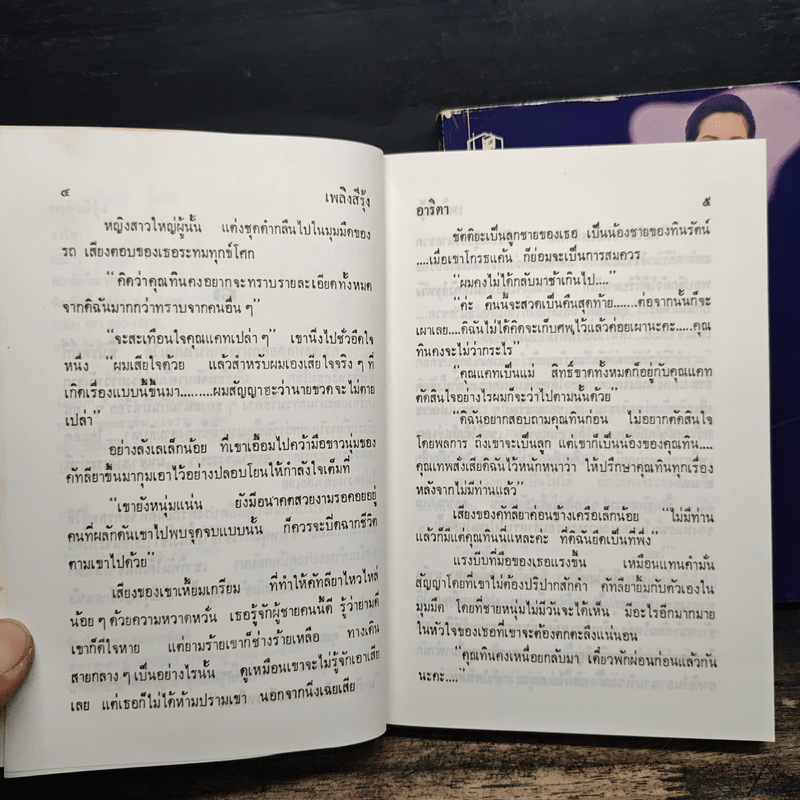 ๔ เพลิงสีรุ้ง
หญิงสาวใหญ่ผู้นั้น แต่งชุดดำกลืนไปในมุมมืดของ
รถ เสียงตอบของเธอระทมทุกข์โศก
“คิดว่าคุณทินคงอยากจะทราบรายละเอียดทั้งหมด
จากดิฉันมากกว่าทราบจากคนอื่น ๆ”
“จะสะเทือนใจคุณแคทเปล่า ๆ” เขานิ่งไปชั่วอึดใจ
หนึ่ง “ผมเสียใจด้วย แล้วสำหรับผมเองเสียใจจริง ๆ ที่
เกิดเรื่องแบบนี้ขึ้นมา.........ผมสัญญาฮะว่านายขวดจะไม่ตาย
เปล่า”
อย่างลังเลเล็กน้อย ที่เขาเอื้อมไปคว้ามือขาวนุ่มของ
คัทลียาขึ้นมากุมเอาไว้อย่างปลอบโยนให้กำลังใจเต็มที่
“เขายังหนุ่มแน่น ยังมีอนาคตสวยงามรอคอยอยู่
คนที่ผลักดันเขาไปพบจุดจบแบบนั้น ก็ควรจะปิดฉากชีวิต
ตามเขาไปด้วย”
เสียงของเขาเหี้ยมเกรียม ที่ทำให้คัทลียาไหวไหล่
น้อย ๆ ด้วยความหวาดหวั่น เธอรู้จักผู้ชายคนนี้ดี รู้ว่ายามดี
เขาก็ดีใจหาย แต่ยามร้ายเขาก็ช่างร้ายเหลือ ทางเดิน
สายกลาง ๆ เป็นอย่างไรนั้น ดูเหมือนเขาจะไม่รู้จักเอาเสีย
เลย แต่เธอก็ไม่ได้ห้ามปรามเขา นอกจากนิ่งเฉยเสีย
อาริตา ๕
ขัตติยะเป็นลูกชายของเธอ เป็นน้องชายของทินรัตน์
....เมื่อเขาโกรธแค้น ก็ย่อมจะเป็นการสมควร
“ผมคงไม่ได้กลับมาช้าเกินไป....”
“ค่ะ คืนนี้จะสวดเป็นคืนสุดท้าย.......ต่อจากนั้นก็จะ
เผาเลย....ดิฉันไม่ได้คิดจะเก็บศพไว้แล้วค่อยเผานะคะ.....คุณ
ทินคงจะไม่ว่ากระไร”
“คุณแคทเป็นแม่ สิทธิ์ขาดทั้งหมดก็อยู่กับคุณแคท
ตัดสินใจอย่างไรผมก็จะว่าไปตามนั้นด้วย”
“ดิฉันอยากสอบถามคุณทินก่อน ไม่อยากตัดสินใจ
โดยพลการ ถึงเขาจะเป็นลูก แต่เขาก็เป็นน้องของคุณทิน....
คุณเทพสั่งเสียดิฉันไว้หนักหนาว่า ให้ปรึกษาคุณทินทุกเรื่อง
หลังจากไม่มีท่านแล้ว”
เสียงของคัทลียาค่อนข้างเครือเล็กน้อย “ไม่มีท่าน
แล้วก็มีแต่คุณทินนี่แหละค่ะ ที่ดิฉันยึดเป็นที่พึ่ง”
แรงบีบที่มือของเธอแรงขึ้น เหมือนแทนคำมั่น
สัญญาโดยที่เขาไม่ต้องปริปากสักคำ คัทลียายิ้มกับตัวเองใน
มุมมืด โดยที่ชายหนุ่มไม่มีวันจะได้เห็น มีอะไรอีกมากมาย
ในหัวใจของเธอที่เขาจะต้องตกตะลึงแน่นอน
“คุณทินคงเหนื่อยกลับมา เดี๋ยวพักผ่อนก่อนแล้วกัน
นะคะ....”